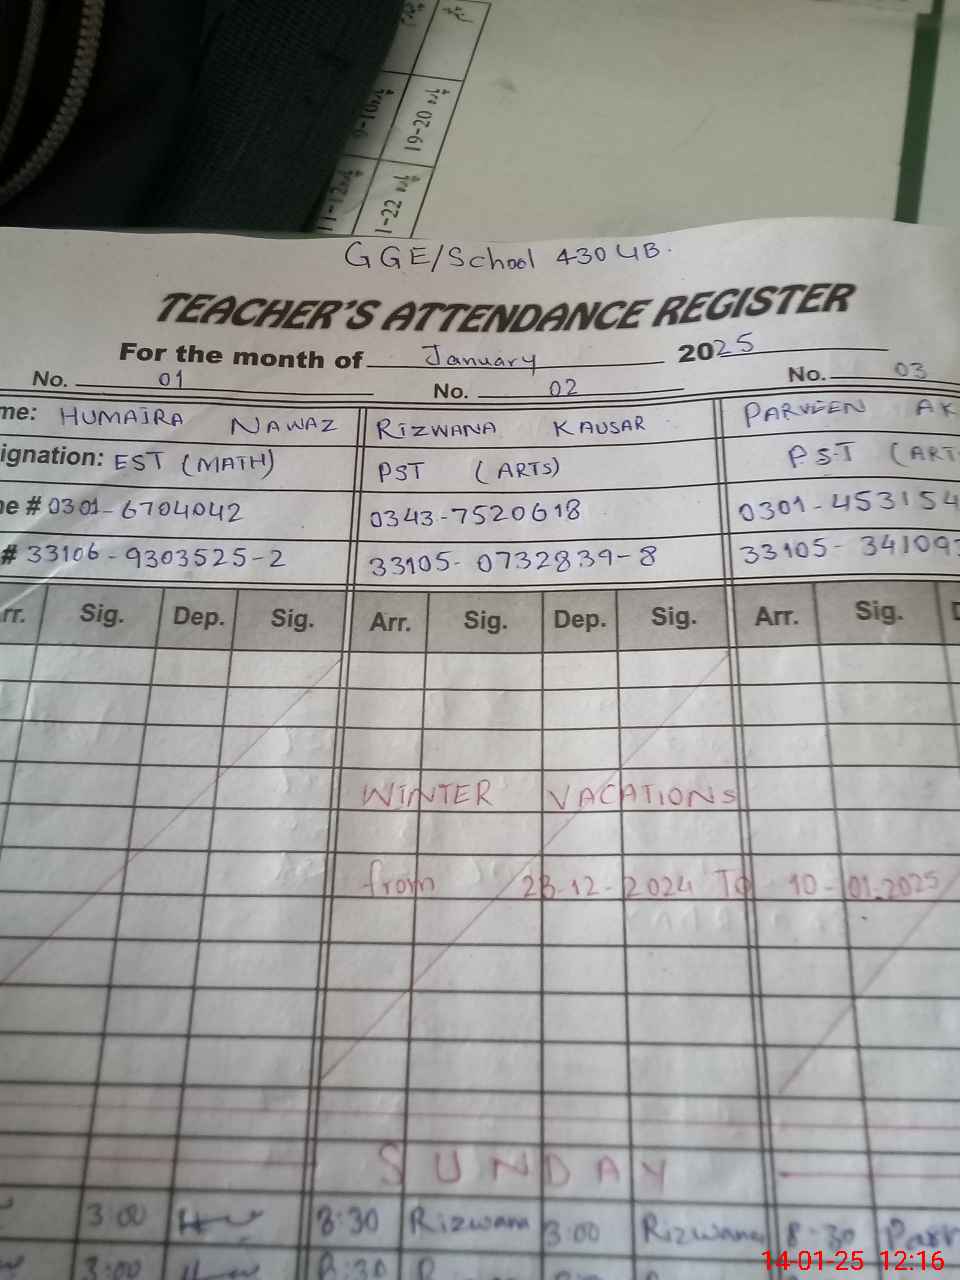 19-20
GGE/School 430 GB.
TEACHER'S ATTENDANCE REGISTER
For the month of January 2025
No. 01 No. 02 No. 03
me: HUMAIRA NAWAZ RIZWANA KAUSAR PARVEEN AK
ignation: EST (MATH) PST (ARTS) PST (ART
ne # 0301-6704042 0343-7520618 0301-453154
# 33106-9303525-2 33105-0732839-8 33105-34109
rr. Sig. Dep. Sig. Arr. Sig. Dep. Sig. Arr. Sig. D
WINTER VACATIONS
from 23-12-2024 TO 10-01-2025
SUNDAY
3:00 8:30 Rizwana 3:00 Rizwana 8-30 Parv
3:00 8:30
14-01-25 12:16